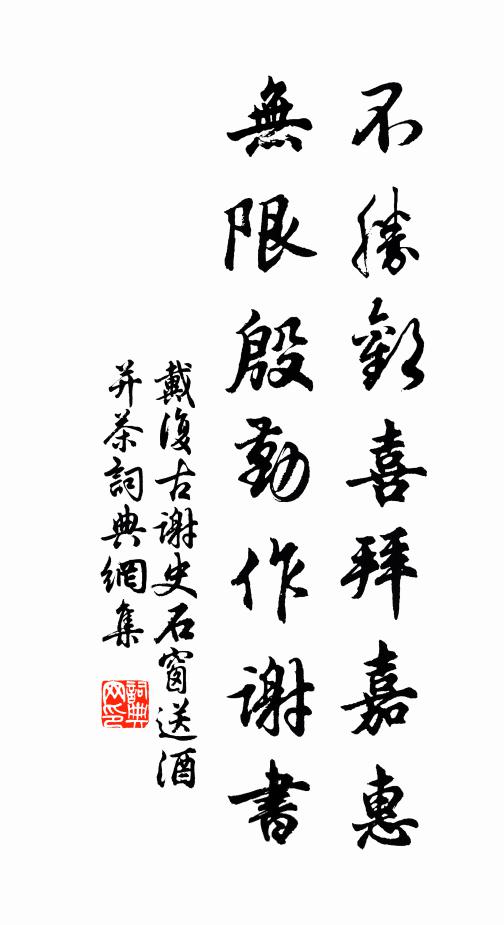 不勝歡喜拜嘉惠
無限殷勤作謝書
戴復古謝史石窗送酒
并茶詞典網集
詞典網印